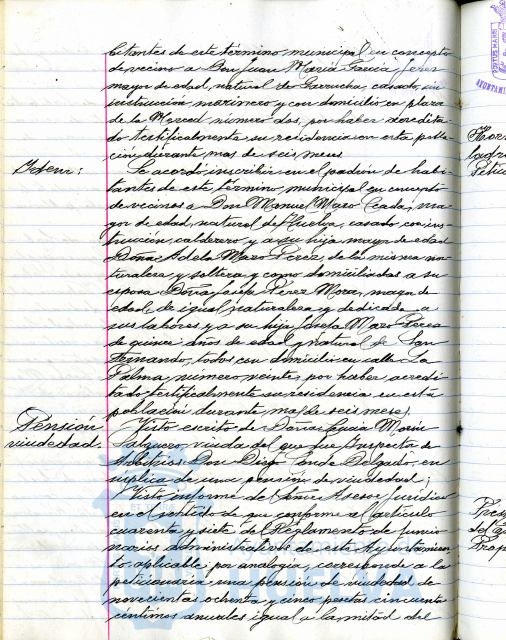 bitantes de este término municipal en concepto
de vecino a Don Juan María García Jerez
mayor de edad, natural de Garrucha, casado, sin
instrucción, marinero y con domicilio en plaza
de la Merced número dos, por haber acredita-
do testificalmente su residencia en esta pobla-
ción durante mas de seis meses
Idem:
Se acordó inscribir en el padrón de habi-
tantes de este término municipal en concepto
de vecinos a Don Manuel Mazo Ceada, ma-
yor de edad, natural de Huelva, casado con ins-
trucción, calderero y a su hija mayor de edad
Doña Adela Mazo Pérez de la misma na-
turaleza y soltera y como domiciliadas a su
esposa Doña Josefa Pérez Mora, mayor de
edad, de igual naturaleza y dedicada a
sus labores y a su hija Josefa Mazo Pérez
de quince años de edad y natural de San
Fernando, todos con domicilio en calle La
Palma, número veinte, por haber acredi-
tado testificalmente su residencia en esta
población durante mas de seis meses.
Pensión
viudedad
Visto escrito de Doña Lucía Marín
Salguero, viuda del que fue Inspector de
Arbitrios Don Diego Conde Delgado, en
súplica de una pensión de viudedad;
Visto informe del Señor Asesor Jurídico
en el sentido de que conforme al artículo
cuarenta y siete del Reglamento de funcio-
narios administrativos de este Ayuntamien-
to aplicable por analogía, corresponde a la
peticionaria una pensión de viudedad de
novecientas ochenta y cinco pesetas cincuenta
céntimos anuales igual a la mitad del